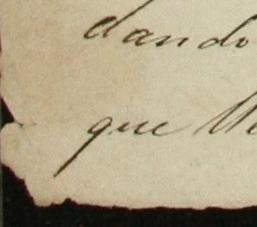 dando
que